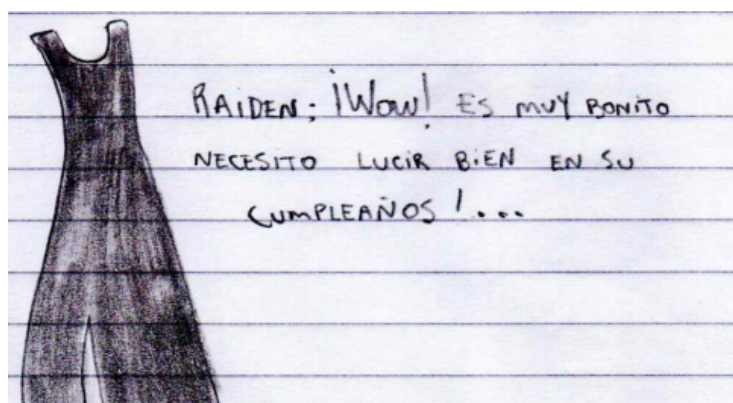 RAIDEN: ¡Wow! ES MUY BONITO
NECESITO LUCIR BIEN EN SU
CUMPLEAÑOS!...